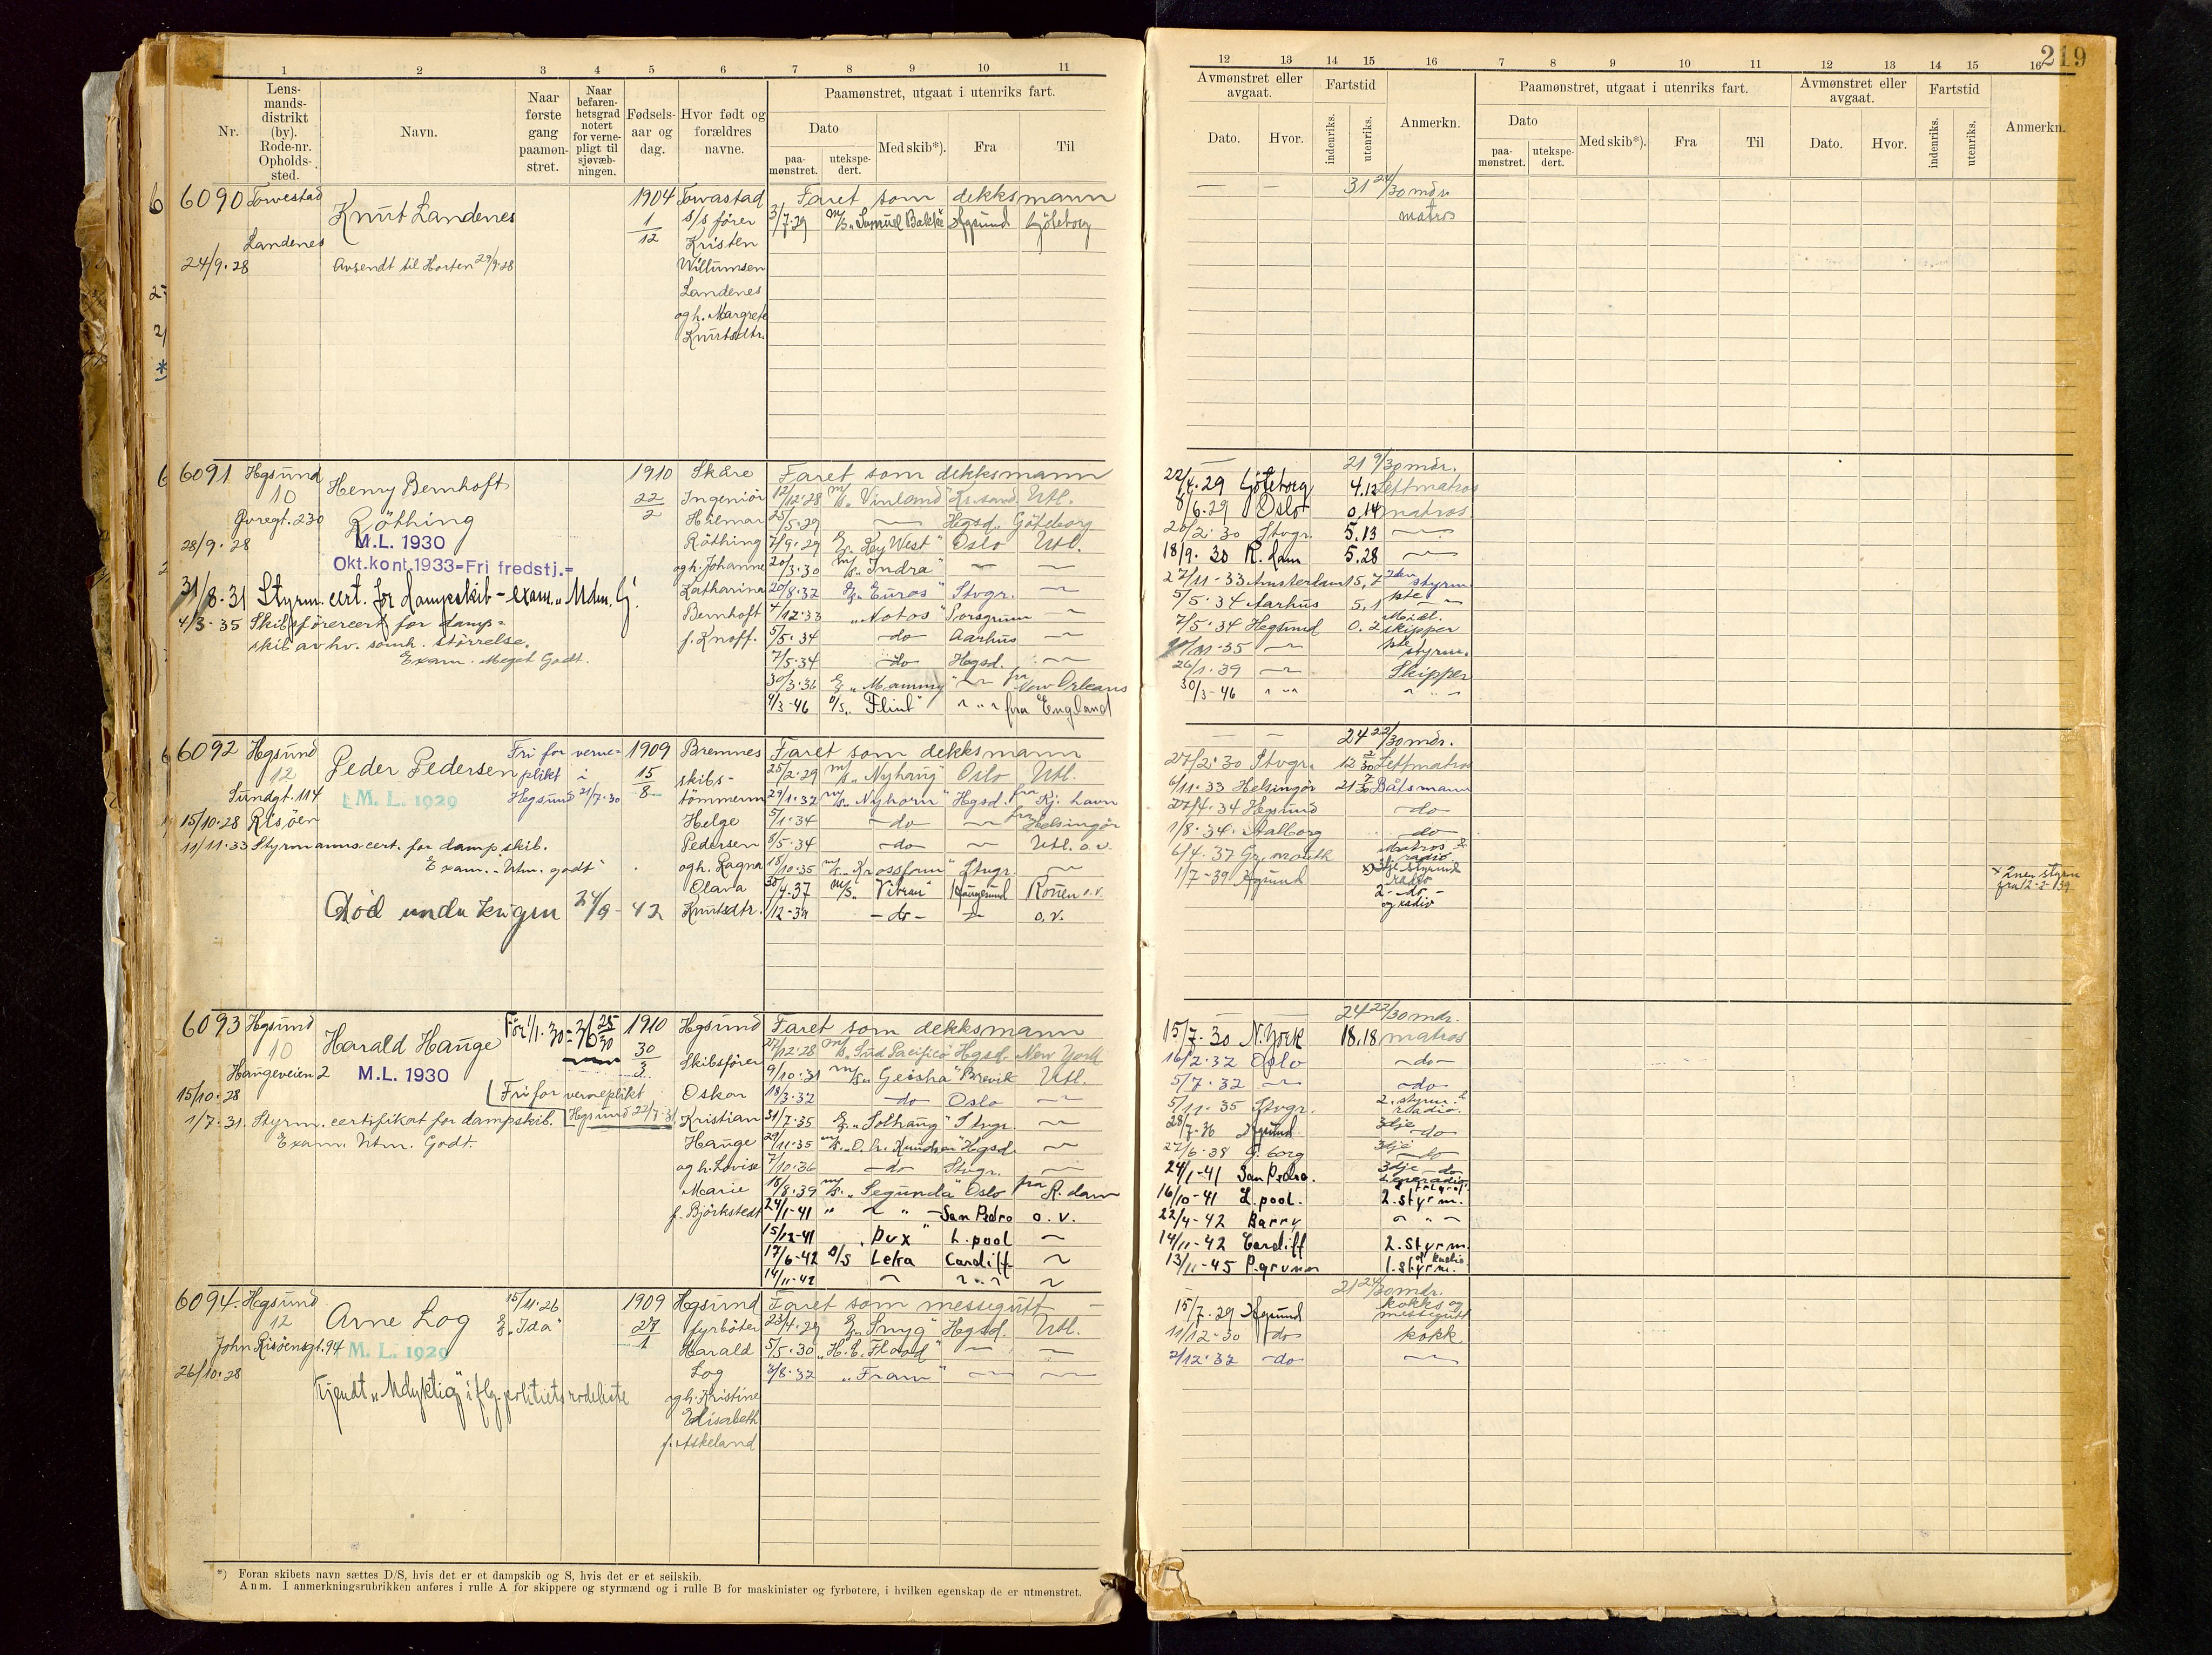 219
1 2 3 4 5 6 7 8 9 10 11
12 13 14 15 16 7 8 9 10 11 12 13 14 15 16
Nr.
Lens-
mands-
distrikt
(by).
Rode-nr.
Opholds-
sted.
Navn.
Naar
første
gang
paamøn-
stret.
Naar
befaren-
hetsgrad
notert
for verne-
pligt til
sjøvæb-
ningen.
Fødsels-
aar og
dag.
Hvor født og
forældres
navne.
Paamønstret, utgaat i utenriks fart.
Dato
paa-
mønstret.
utekspe-
dert.
Med skib*).
Fra
Til
Avmønstret eller
avgaat.
Dato.
Hvor.
Fartstid
indenriks.
utenriks.
Anmerkn.
Paamønstret, utgaat i utenriks fart.
Dato
paa-
mønstret.
utekspe-
dert.
Med skib*).
Fra
Til
Avmønstret eller
avgaat.
Dato.
Hvor.
Fartstid
indenriks.
utenriks.
Anmerkn.
6090 Torvestad
Knut Landenes
Landenes
24/9.28
Avsendt til Horten 29/9.28
1904
1
12
Torvastad
s/s fører
Kristen
Willumsen
Landenes
og h. Margrete
Knutsdtr.
Faret som dekksmann
3/7.29 m/s "Samuel Bakke" Hgsund Göteborg
— — 31 24/30 mdr
matros
6091 Hgsund
10
Øvregt. 230
28/9.28
Henry Bernhoft
Röthing
M.L. 1930
Okt.kont.1933=Fri fredstj.=
31/8.31 Styrm. cert. for dampskib - exam. "Mdm. G."
4/3-35 Skibsførercert for damp=
skib av hv. somh. størrelse.
Exam. Meget Godt.
1910
22
2
Skåre
Ingeniør
Hilmar
Röthing
og h. Johanne
Katharina
Bernhoft
f. Knoff.
Faret som dekksmann
12/12.28 m/s "Vinland" Kr.sand. Utl.
25/5.29 — Hegsd. Göteborg
7/9.29 "Key West" Oslo Utl.
20/3.30 m/s "Indra" — —
20/8.32 "Euros" Stvgr. —
4/12.33 "Notos" Porsgrunn
5/5.34 —do Aarhus —
7/5.34 —do Hegsd. —
30/3.36 "Mammy" — fra New Orleans
4/3-46 D/S "Flint" — " — fra England
— 21 9/30 mdr.
22/4.29 Göteborg 4.12 Lettmatros
8/6.29 Oslo 0.14 matros
20/2.30 Stvgr. 5.13 —
18/9.30 R.dam 5.28 —
27/11-33 Amsterdam 15,7 2den styrm
5/5.34 Aarhus 5.1 1ste —
7/5.34 Hegsund 0.2 Midl. skipper
-35 — 1ste styrm.
26/1.39 — Skipper
30/3-46 — " —
6092 Hgsund
12
Sundgt. 114
15/10.28 Risøen
Peder Pedersen
M. L. 1929
Fri for verne-
plikt i
Hegsund 21/7.30
11/11.33 Styrmanns cert. for dampskib.
Exam.: "Utm. godt"
Död under krigen 24/9-42
1909
15
8
Bremnes
skibs-
tömmerm
Helge
Pedersen
og h. Ragna
Olava
Knutsdtr.
Faret som dekksmann
25/2.29 m/s "Nyhaug" Oslo Utl.
29/1.32 m/s "Nyhorn" Hgsd. fra Kj. havn
5/1.34 —do — fra Helsingør
8/5.34 —do— — Utl. o.v.
18/10.35 m/s "Krossfonn" Stvgr. —
30/4.37 M/S "Vibran" Haugesund Rouen o.v.
1/12-39 —do— — o.v.
— — 24 22/30 mdr.
27/2.30 Stvgr. 12 2/30 Lettmatros
6/11.33 Helsingör 21 7/30 Båtsmann
27/4.34 Hegsund —do
1/8.34. Aalborg —do
6/4.37 Gr. mouth Matros & radio
1/7-39 Hgsund x) 3dje styrmd
radio
2-do-
og radio
x 2nen styrm
fra 2-2-39
6093 Hgsund
10
Haugeveien 2
15/10.28
Harald Hauge
M.L. 1930
Før 1/1.30=36 25/30
Fri for verneplikt
Hegsund 22/7.31
1/7.31. Styrm. certifikat for dampskib.
Exam. Utm. Godt.
1910
30
3
Hgsund
Skibsfører
Oskar
Kristian
Hauge
og h. Lovise
Marie
f. Björkstedt
Faret som dekksmann
27/12.28 m/s "Sud Pacifico" Hgsd. New York
9/10.31 m/s "Geisha" Brevik Utl.
18/3.32 —do Oslo —
31/7.35 "Solhaug" Stvgr. —
29/11.35 m/s "O. A. Knudsen" Hgsd. —
7/10.36 —do Stvgr. —
18/8.39 m/s. "Segunda" Oslo fra R.dam
24/1-41 " — " — San Pedro o.v.
15/12-41 "Pux" L.pool —
17/6-42 D/S Leka Cardiff —
14/11-42 — — " — —
24 22/30 mdr.
15/7.30 N.York 18.18 matros
16/2.32 Oslo —do—
5/7.32 — —do
5/11.35 Stvgr. 2. styrm. & radio.
28/7-36 Hgsund. 3dje —do
27/6.38 G.borg 3dje —do
24/1-41 San Pedro. 3dje —do
16/10-41 L.pool. 2.styrm.
22/4-42 Barry — " —
14/11-42 Cardiff 2.styrm.
13/11-45 P.grunn 1.styrm. og Radio
6094. Hegsund
12
John Risøensgt. 94
26/10.28
Arne Log
M. L. 1929
15/11.26
"Ida"
Kjendt "Udyktig" i flg. politiets rodeliste
1909
27
1
Hegsund
fyrbøter
Harald
Log
og h. Kristine
Elisabeth
f. Askeland
Faret som messegutt —
23/4.29 "Snyg" Hegsd. Utl.
5/5.30 "H. C. Flood" — —
3/8.32 "Fram" — —
21 24/30 mdr.
15/7.29 Hgsund kokk og messegutt
11/12-30 do kokk
2/12.32 —do —
*) Foran skibets navn sættes D/S, hvis det er et dampskib og S, hvis det er et seilskib.
Anm. I anmerkningsrubrikken anføres i rulle A for skippere og styrmænd og i rulle B for maskinister og fyrbøtere, i hvilken egenskap de er utmønstret.